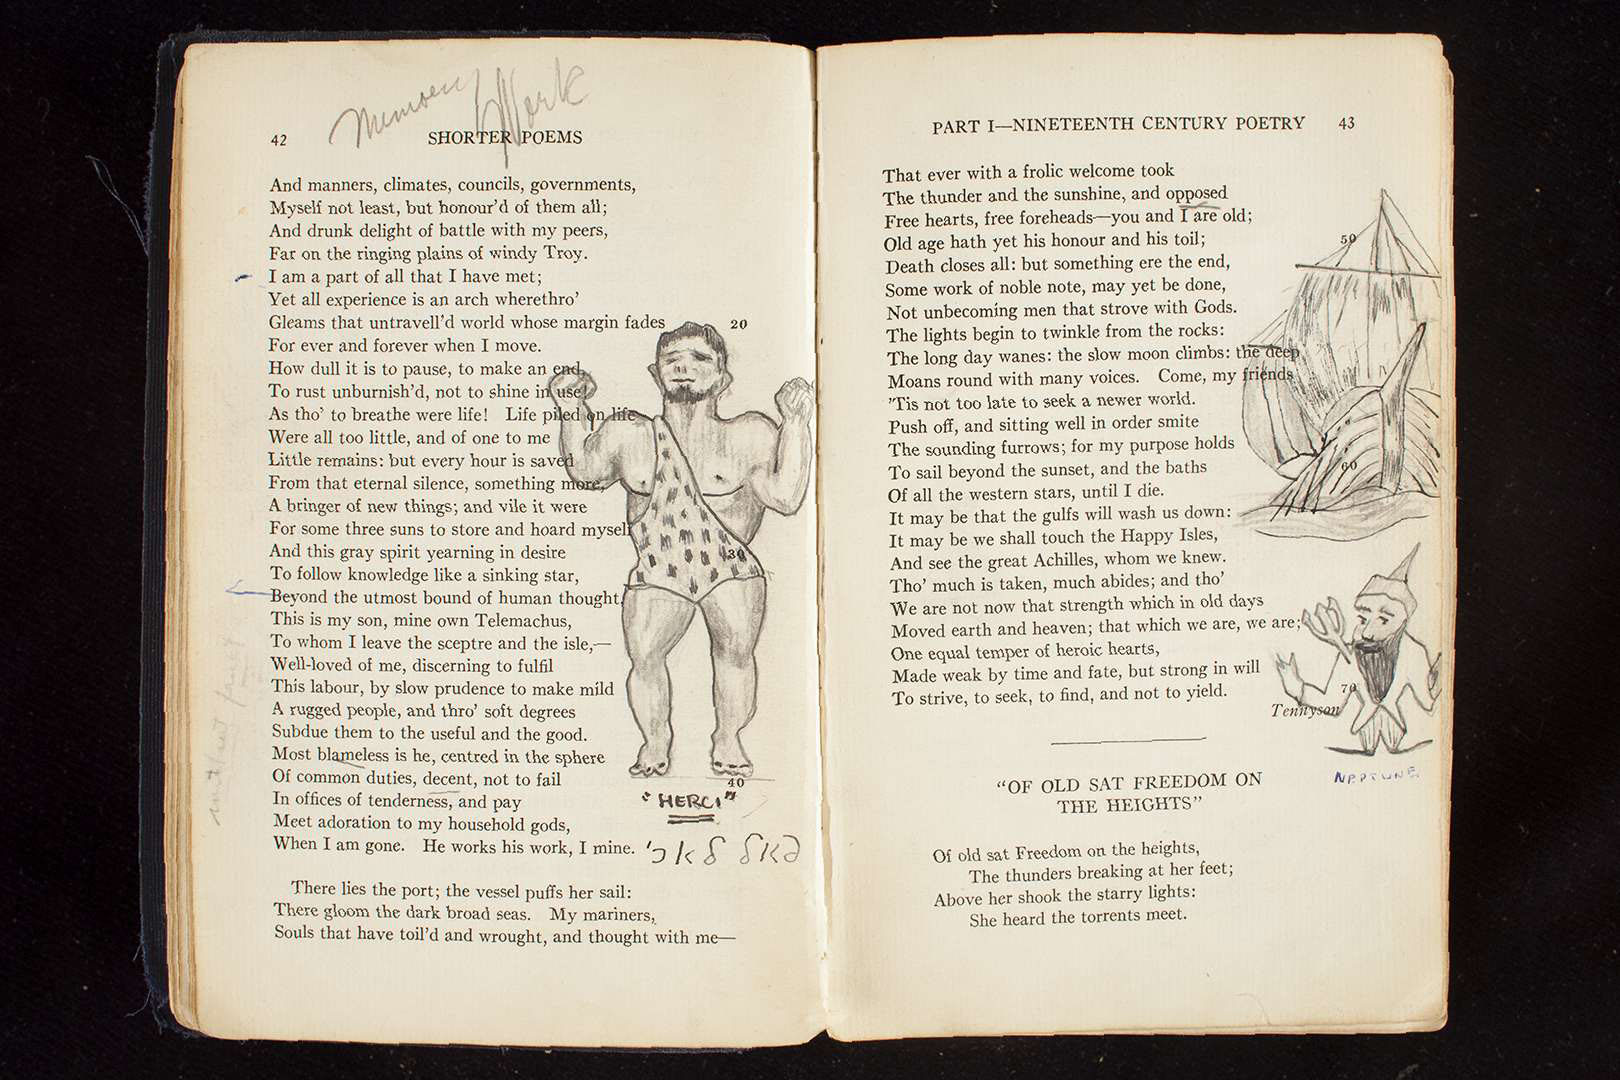 Memory Work
42 SHORTER POEMS
And manners, climates, councils, governments,
Myself not least, but honour'd of them all;
And drunk delight of battle with my peers,
Far on the ringing plains of windy Troy.
I am a part of all that I have met;
Yet all experience is an arch wherethro'
Gleams that untravell'd world whose margin fades 20
For ever and forever when I move.
How dull it is to pause, to make an end,
To rust unburnish'd, not to shine in use!
As tho' to breathe were life! Life piled on life
Were all too little, and of one to me
Little remains: but every hour is saved
From that eternal silence, something more,
A bringer of new things; and vile it were
For some three suns to store and hoard myself
And this gray spirit yearning in desire 30
To follow knowledge like a sinking star,
Beyond the utmost bound of human thought.
This is my son, mine own Telemachus,
To whom I leave the sceptre and the isle,—
Well-loved of me, discerning to fulfil
This labour, by slow prudence to make mild
A rugged people, and thro' soft degrees
Subdue them to the useful and the good.
Most blameless is he, centred in the sphere
Of common duties, decent, not to fail 40
In offices of tenderness, and pay
"HERCI"
Meet adoration to my household gods,
When I am gone. He works his work, I mine.
There lies the port; the vessel puffs her sail:
There gloom the dark broad seas. My mariners,
Souls that have toil'd and wrought, and thought with me—
PART I—NINETEENTH CENTURY POETRY 43
That ever with a frolic welcome took
The thunder and the sunshine, and opposed
Free hearts, free foreheads—you and I are old;
Old age hath yet his honour and his toil; 50
Death closes all: but something ere the end,
Some work of noble note, may yet be done,
Not unbecoming men that strove with Gods.
The lights begin to twinkle from the rocks:
The long day wanes: the slow moon climbs: the deep
Moans round with many voices. Come, my friends
'Tis not too late to seek a newer world.
Push off, and sitting well in order smite
The sounding furrows; for my purpose holds
To sail beyond the sunset, and the baths 60
Of all the western stars, until I die.
It may be that the gulfs will wash us down:
It may be we shall touch the Happy Isles,
And see the great Achilles, whom we knew.
Tho' much is taken, much abides; and tho'
We are not now that strength which in old days
Moved earth and heaven; that which we are, we are;
One equal temper of heroic hearts,
Made weak by time and fate, but strong in will
To strive, to seek, to find, and not to yield. 70
Tennyson
NEPTUNE
"OF OLD SAT FREEDOM ON
THE HEIGHTS"
Of old sat Freedom on the heights,
The thunders breaking at her feet;
Above her shook the starry lights:
She heard the torrents meet.